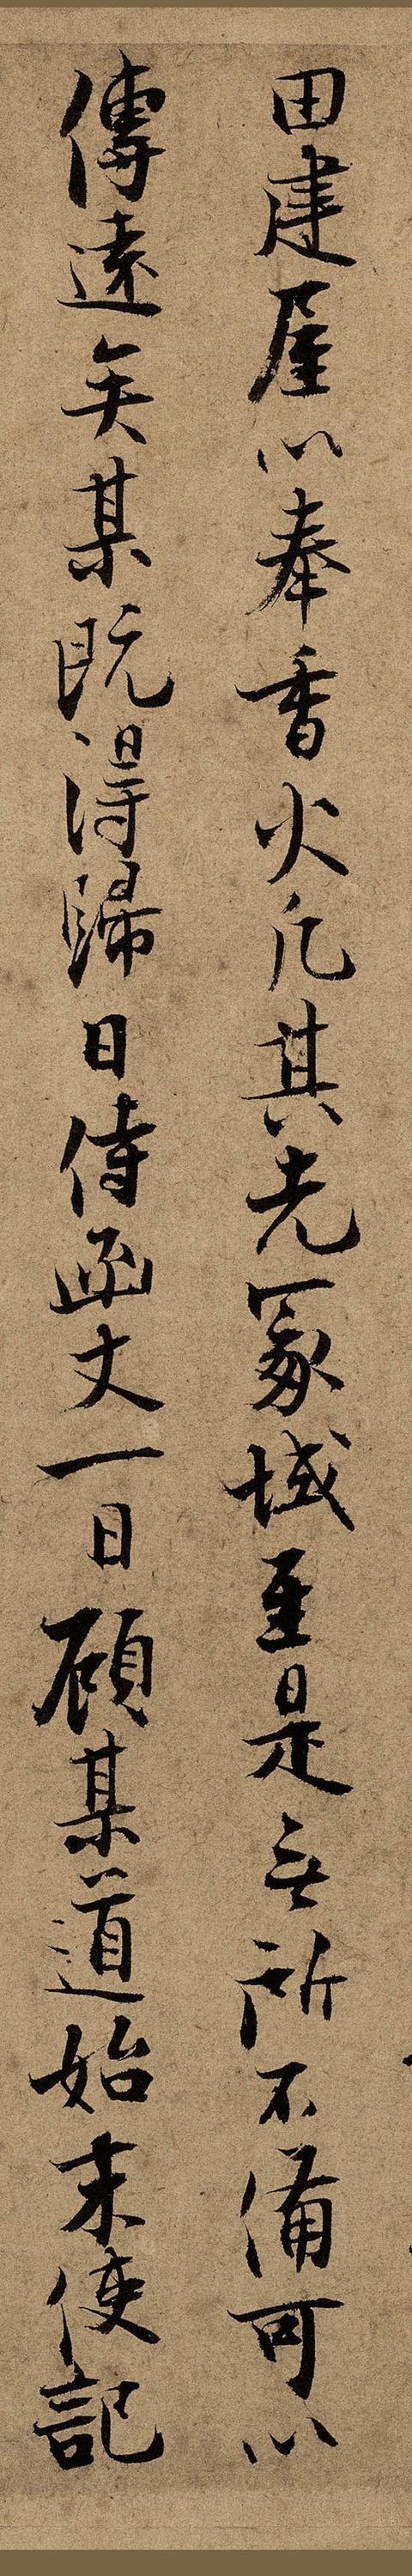 田建屋以奉香火凡其先冢域至是無所不備可以
傳遠矣某既得歸日侍函丈一日顧某道始末使記